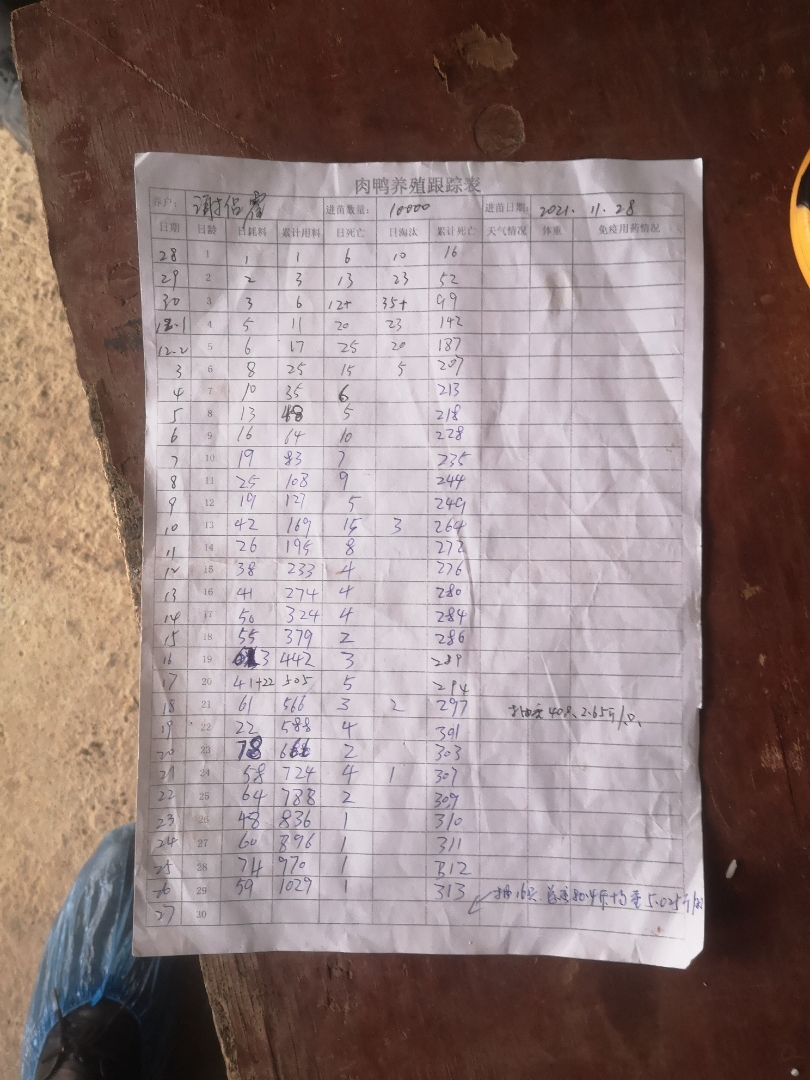 肉鸭养殖跟踪表
养户： 谢 进苗数量： 10000 进苗日期： 2021. 11. 28
日期 日龄 日耗料 累计用料 日死亡 日淘汰 累计死亡 天气情况 体重 免疫用药情况
28 1 1 1 6 10 16
29 2 2 3 13 23 52
30 3 3 6 12+ 35+ 99
12.1 4 5 11 20 23 142
12.2 5 6 17 25 20 187
3 6 8 25 15 5 207
4 7 10 35 6 213
5 8 13 48 5 218
6 9 16 64 10 228
7 10 19 83 7 235
8 11 25 108 9 244
9 12 19 127 5 249
10 13 42 169 15 3 264
11 14 26 195 8 272
12 15 38 233 4 276
13 16 41 274 4 280
14 17 50 324 4 284
15 18 55 379 2 286
16 19 63 442 3 289
17 20 41+22 505 5 294
18 21 61 566 3 2 297 40只 2.65斤/只
19 22 22 588 4 301
20 23 78 666 2 303
21 24 58 724 4 1 307
22 25 64 788 2 309
23 26 48 836 1 310
24 27 60 896 1 311
25 28 74 970 1 312
26 29 59 1029 1 313 抽16只 总重80.4斤 均重5.025斤/只
27 30